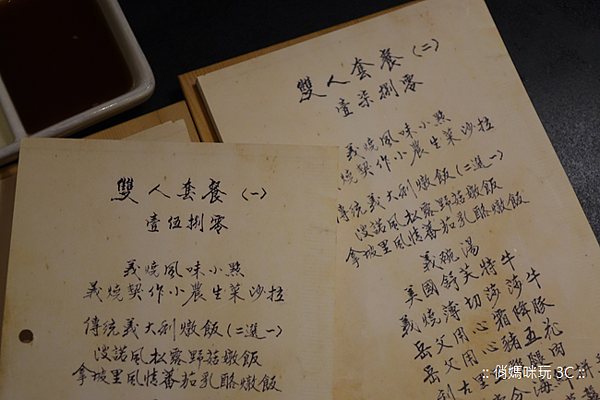 雙人套餐(一)
壹伍捌零
義燒風味小點
義燒契作小農生菜沙拉
傳統義大利燉飯(二選一)
波諾風松露野菇燉飯
拿坡里風情蕃茄乳酪燉飯
雙人套餐(二)
壹柒捌零
義燒風味小點
燒契作小農生菜沙拉
傳統義大利燉飯(二選一)
波諾風松露野菇燉飯
拿坡里風情蕃茄乳酪燉飯
義碗湯
美國舒芙特牛
義燒薄切莎莎牛
岳父用心霜降豚
岳父用心豬五花
:: 俏媽咪玩 3C ::